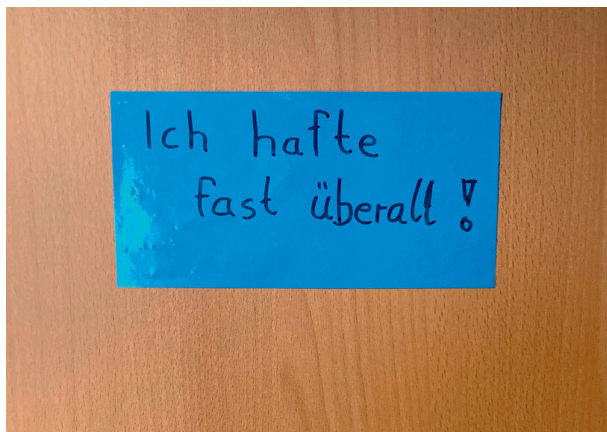 Ich hafte
fast überall!